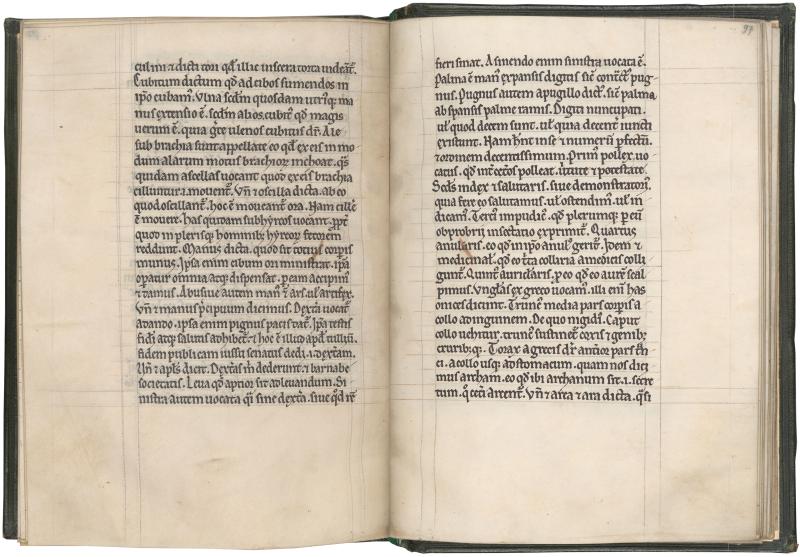 culmi ⁊ dicta tori qđ illic viscera torta videāt᷑.
Cubitum dictum qđ ad cibos sumendos in
ip̄o cubam᷒. Vlna scđm quosdam utriq; ma
nus extensio ē. scđm alios cubit᷒ qđ magis
verum ē. quia grece ulenos cubitus dr̄. Ale
sub brachia sunt appellate eo qđ ex eis in mo
dum alarum motus brachior̄ inchoat. q̄s
quidam ascellas uocant quod ex eis brachia
cilluntur .i. mouent᷑. Vn̄ ⁊ oscilla dicta. ab eo
quod oscillant᷑. hoc ē moueant᷑ ora. Nam cille
ē mouere. has quidam subhyrcos uocant. ꝓpt̄
quod in plerisq; hominib; hyrcor̄ fetorem
reddunt. Manus dicta. quod sit totius corpis
munus. Ipsa enim cibum ori ministrat. ip̄a
opatur omnia atq; dispensat. p eam accipim᷒
⁊ damus. Abusiue autem man᷒ ⁊ ars ul' artifex.
Vn̄ ⁊ manus p̄cipuum dicimus. Dext̄a uocat᷑
a dando. ipsa enim pignus pacis dat᷑. Ip̄a testis
fidei atq; salutis adhibet᷑. ⁊ hoc ē illud apđ tulliū.
fidem publicam iussu senatus dedi .i. dext̄am.
Vn̄ ⁊ apl̄s dicit. Dext̄as m̄ dederunt. ⁊ barnabe
societatis. Leua qđ aptior sit ad leuandum. Si
nistra autem uocata q̄si sine dext̄a. siue qđ rē
97
fieri sinat. A sinendo enim sinistra uocata ē.
Palma ē man᷒ expansis digitis sic̄ cont̄ct᷒ pug
nus. Pugnus autem a pugillo dict᷒. sic̄ palma
ab spansis palme ramis. Digiti nuncupati.
ul' quod decem sunt. ul' quia decent᷑ iuncti
existunt. Nam hn̄t in se ⁊ numerū ꝑfectū.
⁊ ordinem decentissimum. Prim᷒ pollex uo
catus. qđ int̄ cet̄os polleat. v̄tute ⁊ potestate.
Scđs index ⁊ salutaris. siue demonstratori᷒.
quia fere eo salutamus. ul' ostendim᷒. ul' in
dicam᷒. Terci᷒ impudic᷒. qđ plerumq; p eū
obprobrii insectatio exprimit᷑. Quartus
anularis. eo qđ in ip̄o anul᷒ gerit᷑. Idem ⁊
medicinal᷒. qđ eo t̄ta colliria a medicis colli
gunt᷑. Quint᷒ auricularis. p eo qđ eo aurē scal
pimus. Vngl̄as ex greco vocam᷒. illi enī has
onices dicunt. Trunc᷒ media pars corp̄is a
collo ad inguinem. De quo nigidi᷒. Caput
collo uehitur. trunc᷒ sustinet᷑ coxis ⁊ genib;
cruribus q;. Torax a grecis dr̄ antior pars t̄ū
ci. a collo usq; ad stomacum. quam nos dici
mus archam. eo qđ ibi archanum sit .i. secre
tum. q̄ cet̄i arcent᷑. Vn̄ ⁊ arca ⁊ ara dicta. q̄si